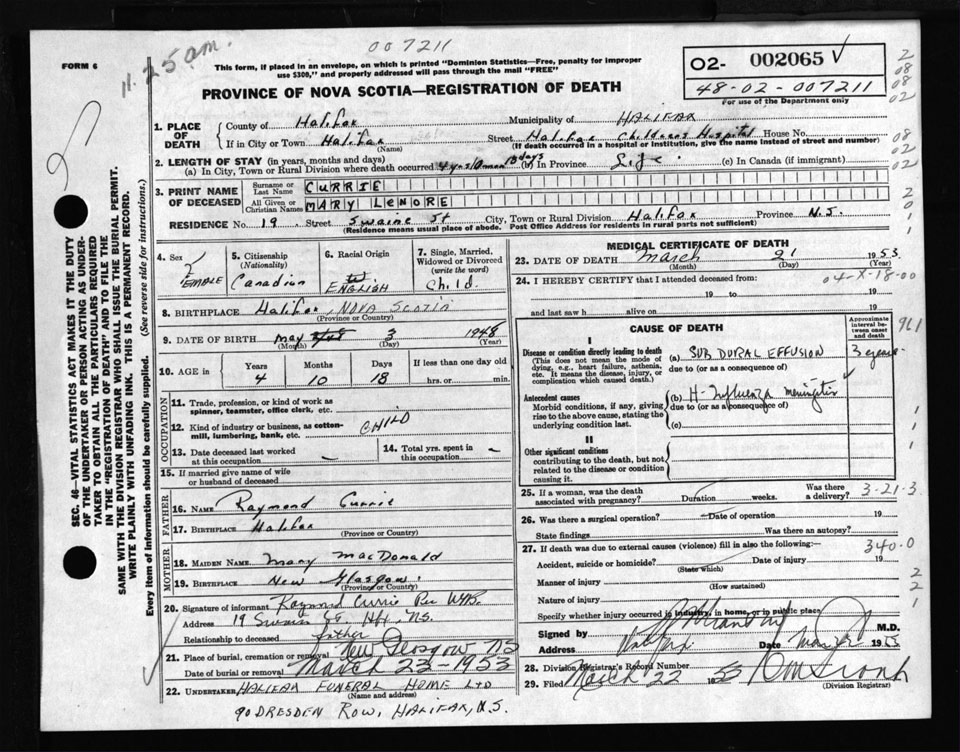 11.25 am.
007211
FORM 6
This form, if placed in an envelope, on which is printed "Dominion Statistics—Free, penalty for improper
use $300," and properly addressed will pass through the mail "FREE"
O2- 002065 √
48-02-007211
For use of the Department only
PROVINCE OF NOVA SCOTIA—REGISTRATION OF DEATH
1. PLACE OF DEATH
County of Halifax Municipality of HALIFAX
If in City or Town Halifax Street Halifax Childrens Hospital House No.
(Name) (If death occurred in a hospital or institution, give the name instead of street and number)
2. LENGTH OF STAY (in years, months and days)
(a) In City, Town or Rural Division where death occurred 4 yrs 10 mon 18 days (b) In Province Life (c) In Canada (if immigrant)
3. PRINT NAME OF DECEASED
Surname or Last Name CURRIE
All Given or Christian Names MARY LENORE
RESIDENCE No. 19 Street Swaine St City, Town or Rural Division Halifax Province N.S.
(Residence means usual place of abode. Post Office Address for residents in rural parts not sufficient)
4. Sex FEMALE
5. Citizenship (Nationality) Canadian
6. Racial Origin ENGLISH
7. Single, Married, Widowed or Divorced (write the word) Child.
8. BIRTHPLACE Halifax, NOVA SCOTIA
(Province or Country)
9. DATE OF BIRTH May 3 1948
(Month) (Day) (Year)
10. AGE in Years Months Days If less than one day old
4 10 18 hrs. or min.
OCCUPATION
11. Trade, profession, or kind of work as
spinner, teamster, office clerk, etc.
12. Kind of industry or business, as cotton-
mill, lumbering, bank, etc. CHILD
13. Date deceased last worked
at this occupation –
14. Total yrs. spent in
this occupation –
15. If married give name of wife
or husband of deceased
FATHER
16. NAME Raymond Currie
17. BIRTHPLACE Halifax
(Province or Country)
MOTHER
18. MAIDEN NAME Mary MacDonald
19. BIRTHPLACE New Glasgow
(Province or Country)
20. Signature of informant Raymond Currie Per
Address 19 Swain St. Hfx, NS.
Relationship to deceased father
21. Place of burial, cremation or removal New Glasgow NS
Date of burial or removal March 23-1953
22. UNDERTAKER HALIFAX FUNERAL HOME LTD
(Name and address)
90 DRESDEN ROW, HALIFAX, N.S.
MEDICAL CERTIFICATE OF DEATH
23. DATE OF DEATH March 21 1953
(Month) (Day) (Year)
24. I HEREBY CERTIFY that I attended deceased from: 04-X-18-00
19 to 19
and last saw h alive on 19
CAUSE OF DEATH
Approximate interval between onset and death
I
Disease or condition directly leading to death
(This does not mean the mode of
dying, e.g., heart failure, asthenia,
etc. It means the disease, injury, or
complication which caused death.)
(a) SUB DURAL EFFUSION
due to (or as a consequence of)
Antecedent causes
Morbid conditions, if any, giving
rise to the above cause, stating the
underlying condition last.
(b) H-Influenza meningitis
due to (or as a consequence of)
(c)
II
Other significant conditions
contributing to the death, but not
related to the disease or condition
causing it.
25. If a woman, was the death Was there 3-21-3
associated with pregnancy? Duration weeks. a delivery?
26. Was there a surgical operation? Date of operation 19
State findings Was there an autopsy?
27. If death was due to external causes (violence) fill in also the following:— 340-0
Accident, suicide or homicide? Date of injury 19
(State which)
Manner of injury
(How sustained)
Nature of injury
Specify whether injury occurred in industry, in home, or in public place
Signed by M.D.
Address Halifax Date 1953
28. Division Registrar's Record Number
29. Filed March 22 1953
(Division Registrar)
SEC. 46—VITAL STATISTICS ACT MAKES IT THE DUTY
OF THE UNDERTAKER OR PERSON ACTING AS UNDER-
TAKER TO OBTAIN ALL THE PARTICULARS REQUIRED
IN THE "REGISTRATION OF DEATH" AND TO FILE THE
SAME WITH THE DIVISION REGISTRAR WHO SHALL ISSUE THE BURIAL PERMIT.
WRITE PLAINLY WITH UNFADING INK. THIS IS A PERMANENT RECORD.
Every item of information should be carefully supplied. (See reverse side for instructions.)
2
08
08
02
08
02
02
2
0
1
961
1
1
1
2
2
1